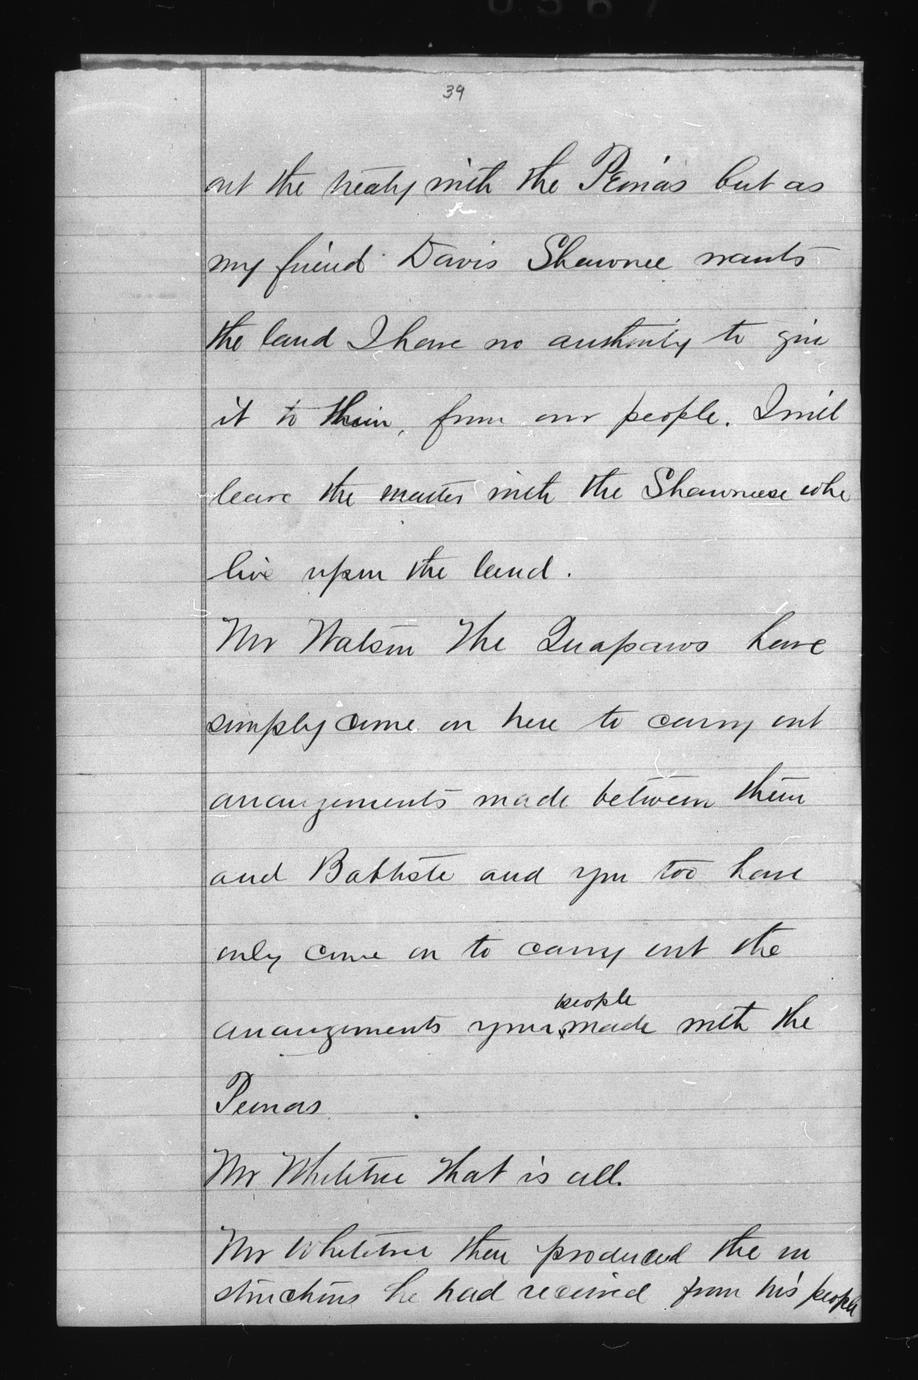 39
out the treaty with the Peorias but as
my friend Davis Shawnee wants
the land I have no authority to give
it to them, from our people. I will
leave the matter with the Shawneese who
live upon the land.
Mr Watson The Quapaws have
simply come on here to carry out
arrangements made between them
and Babtiste and you too have
only come on to carry out the
people
arrangements your made with the
Peorias
Mr Whitetree That is all.
Mr Whitetree then produced the in
structions he had received from his people